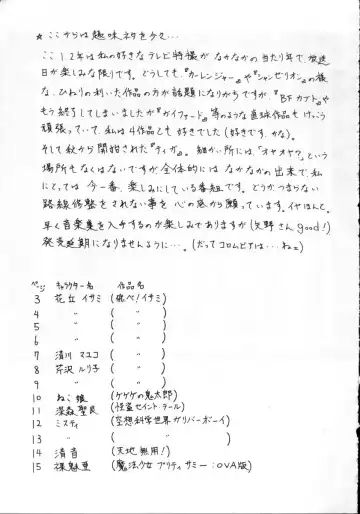 ★ ここからは趣味ネタを少々…
ここ1、2年は私の好きなテレビ特撮がなかなかの当たり年で、放送
日が楽しみな限りです。どうしても、『カーレンジャー』や『シャンゼリオン』の様
な、ひねりの利いた作品の方が話題になりがちですが、『BFカブト』や
もう終了してしまいましたが『ガイファード』等のような直球作品もけっこう
頑張っていて、私は4作品とも好きでした(好きです、かな)。
そして秋から開始された『ティガ』。細かい所には、「オヤオヤ?」という
場所もなくはないですが全体的にはなかなかの出来で、私
にとっては今一番、楽しみにしている番組です。どうかつまらない
路線修整をされない事を心の底から願っています。イヤほんと。
早く音楽集を入手するのが楽しみでありますが(矢野さんgood!)
発売延期になりませんように…。(だってコロムビアは…ねェ)
ページ キャラクター名 作品名
3 花丘イサミ (飛べ!イサミ)
4 〃 ( 〃 )
5 〃 ( 〃 )
6 〃 ( 〃 )
7 清川マユコ ( 〃 )
8 芹沢ルリ子 ( 〃 )
9 〃 ( 〃 )
10 ねこ娘 (ゲゲゲの鬼太郎)
11 深森聖良 (怪盗セイント・テール)
12 ミスティ (空想科学世界ガリバーボーイ)
13 〃 ( 〃 )
14 清音 (天地無用!)
15 裸魅亜 (魔法少女プリティサミー:OVA版)